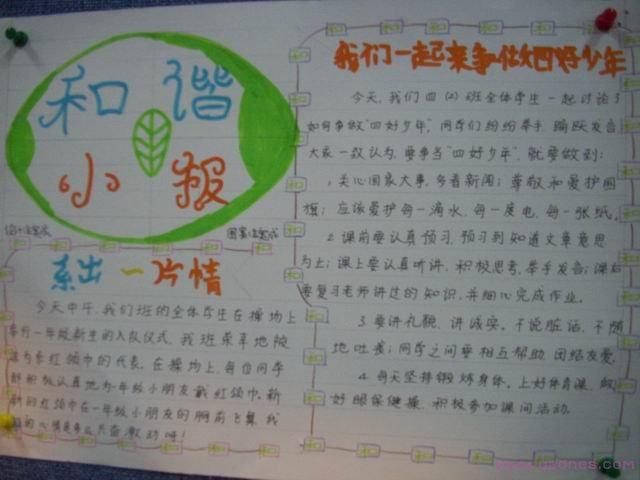 和谐
小报
系出一片情
今天中午,我们班的全体学生在操场上
举行一年级新生的入队仪式,我班荣幸地被
选为系红领巾的代表。在操场上,每位同学
都积极认真地为一年级小朋友戴红领巾,新
新的红领巾在一年级小朋友的胸前飞舞,我
们的心情是多么兴奋激动呀!
我们一起来争做四好少年
今天,我们四(2)班全体学生一起讨论了
如何争做"四好少年",同学们纷纷举手,踊跃发言,
大家一致认为,要争当"四好少年"就要做到:
1.关心国家大事,多看新闻;尊敬和爱护国
旗;应该爱护每一滴水,每一度电,每一张纸。
2.课前要认真预习,预习到知道文章意思
为止;课上要认真听讲,积极思考,举手发言;课后
要复习老师讲过的知识,并细心完成作业。
3.要讲礼貌,讲诚实。不说脏话,不随
地吐痰;同学之间要相互帮助,团结友爱。
4.每天坚持锻炼身体。上好体育课,做
好眼保健操,积极参加课间活动。